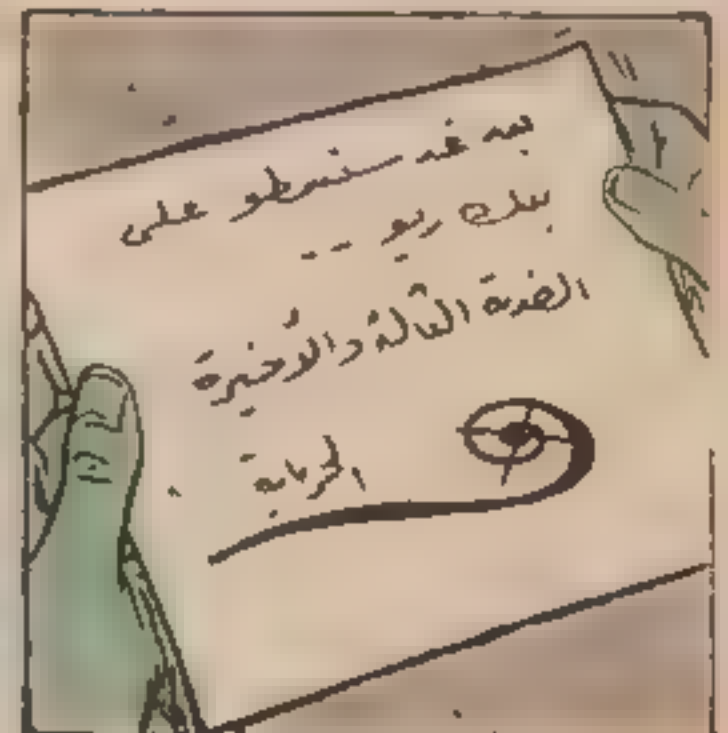 بعد غد سنسطو على
بيت ريو --
الضربة الثالثة والأخيرة
الحرباية